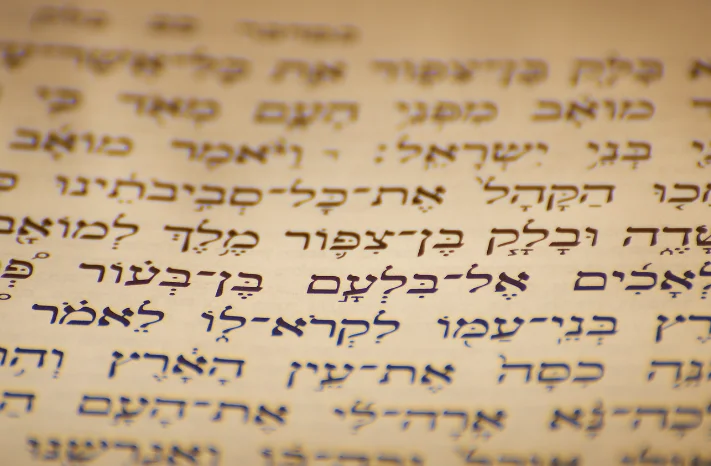 בָּלָק בֶּן־צִפּוֹר אֵת כָּל־אֲשֶׁר־
מוֹאָב מִפְּנֵי הָעָם מְאֹד כִּי
בְּנֵי יִשְׂרָאֵל׃ וַיֹּאמֶר מוֹאָב
הַקָּהָל֙ אֶת־כָּל־סְבִ֣יבֹתֵ֔ינוּ
שָּׂדֶ֑ה וּבָלָ֧ק בֶּן־צִפּ֛וֹר מֶ֥לֶךְ לְמוֹאָ֖ב
לְאָכִ֜ים אֶל־בִּלְעָ֣ם בֶּן־בְּע֗וֹר
רֶץ בְּנֵי־עַמּ֖וֹ לִקְרֹא־ל֑וֹ לֵאמֹ֗ר
נֵּ֤ה כִסָּה֙ אֶת־עֵ֣ין הָאָ֔רֶץ וְה֥וּ
כָה־נָּ֨א אָֽרָה־לִּ֜י אֶת־הָעָ֣ם הַ
וַאֲגָרְשֶׁנּוּ